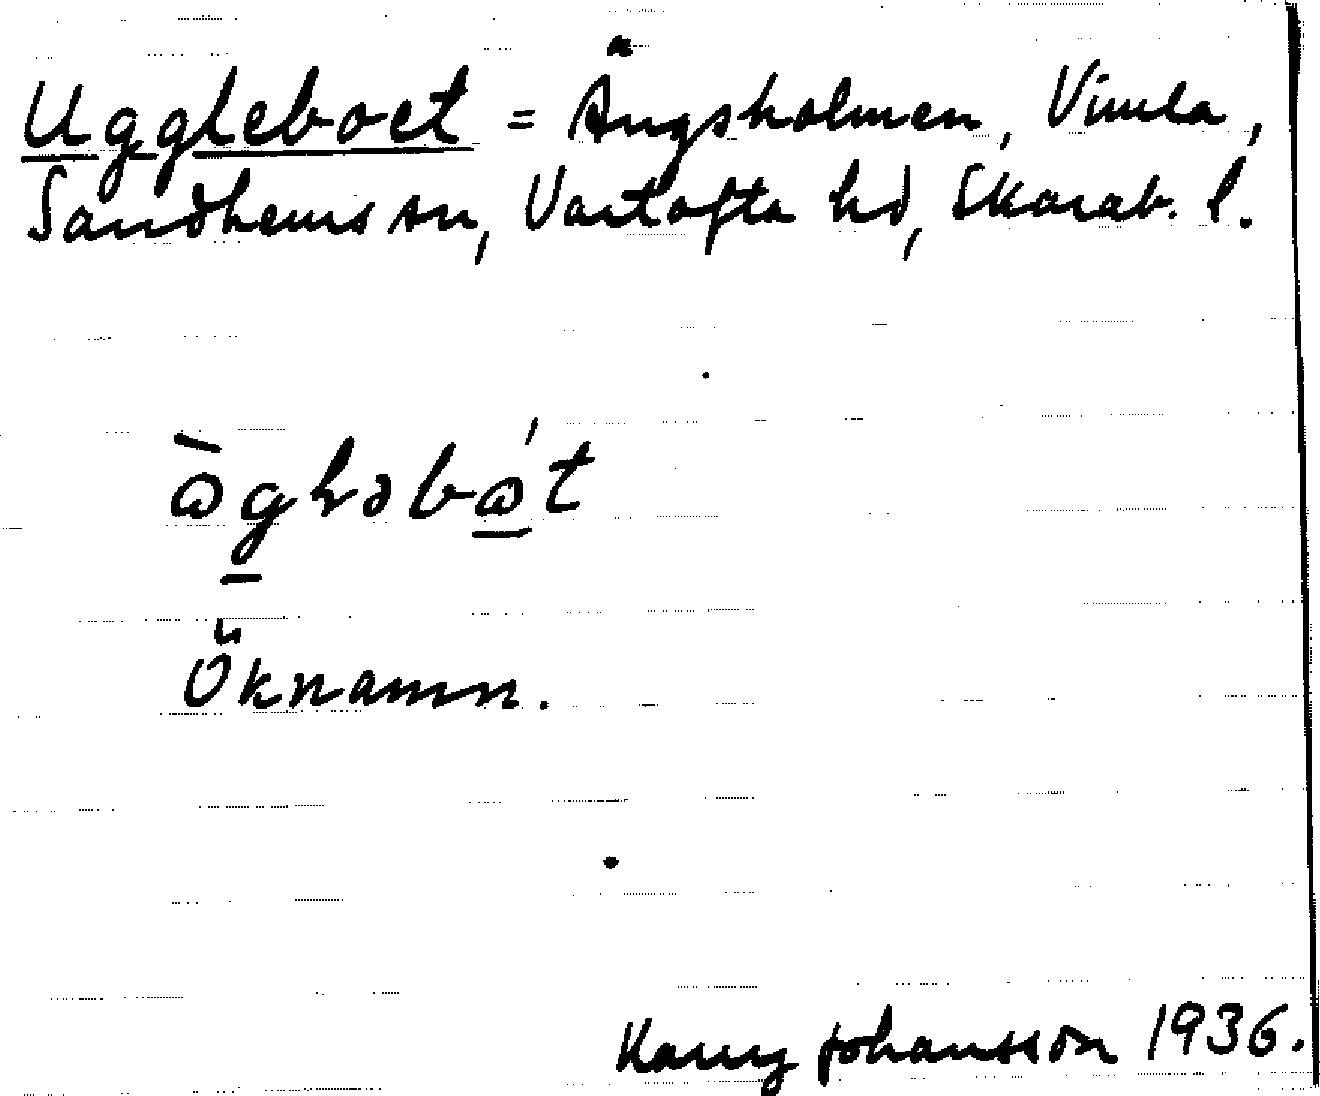 Uggleboet = Ängsholmen, Vimla,
Sandhems sn, Vartofta hd, Skarab. l.
Öknamn.
Johansson 1936.